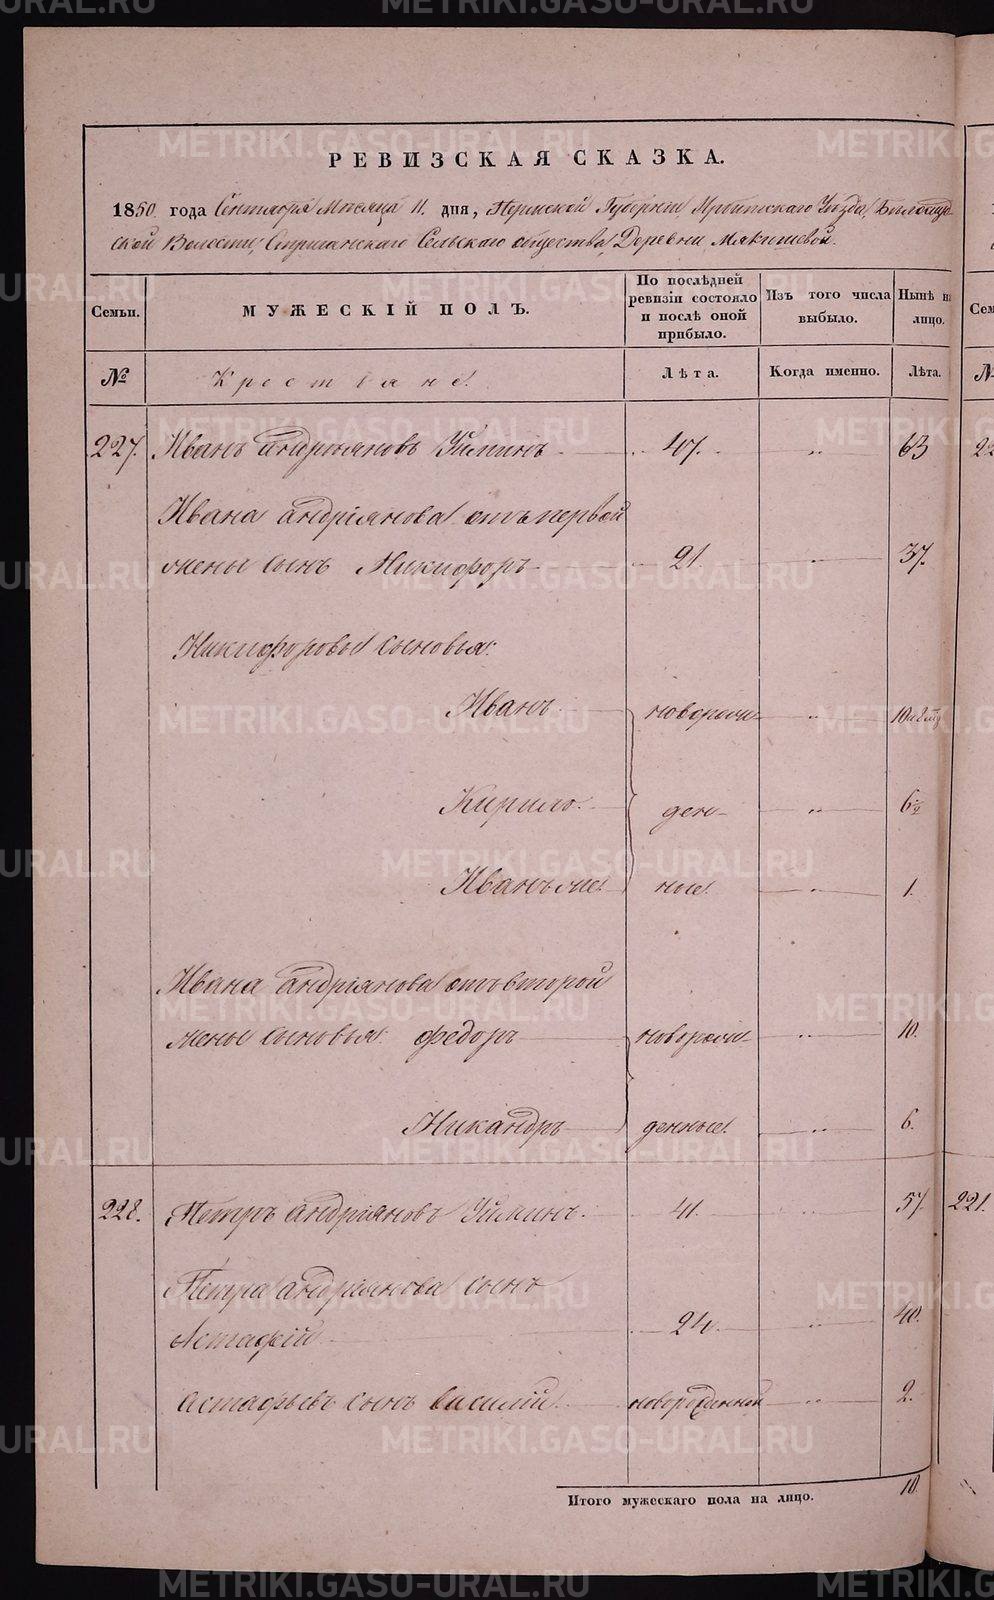 РЕВИЗСКАЯ СКАЗКА.
1850 года Сентября Месяца 11. дня, Пермской Губернии Ирбитского Уезда,
ской Волости, Сельского общества, Деревни Мякишевой.
Семьи. МУЖЕСКІЙ ПОЛЪ. По послѣдней ревизіи состояло и послѣ оной прибыло. Изъ того числа выбыло. Нынѣ на лицо.
№ Крестьяне. Лѣта. Когда именно. Лѣта.
227. Иванъ Андрияновъ Уйминъ 47. " 63
Ивана Андріянова отъ первой
жены сынъ Никифоръ 21. " 37.
Никифоровы сыновья:
Иванъ новорож- "
Кирило. ден- " 6 ½
Иванъ же ные. " 1.
Ивана Андріянова отъ второй
жены сыновья: Федоръ новорож- " 10.
Никандръ денные. " 6.
228. Петръ Андріяновъ Уйминъ. 41. " 57. 221.
Петра Андріянова сынъ
Астафій 24. " 40.
Астафьевъ сынъ Василій. новорожденный " 2.
Итого мужескаго пола на лицо. 10.
METRIKI.GASO-URAL.RU